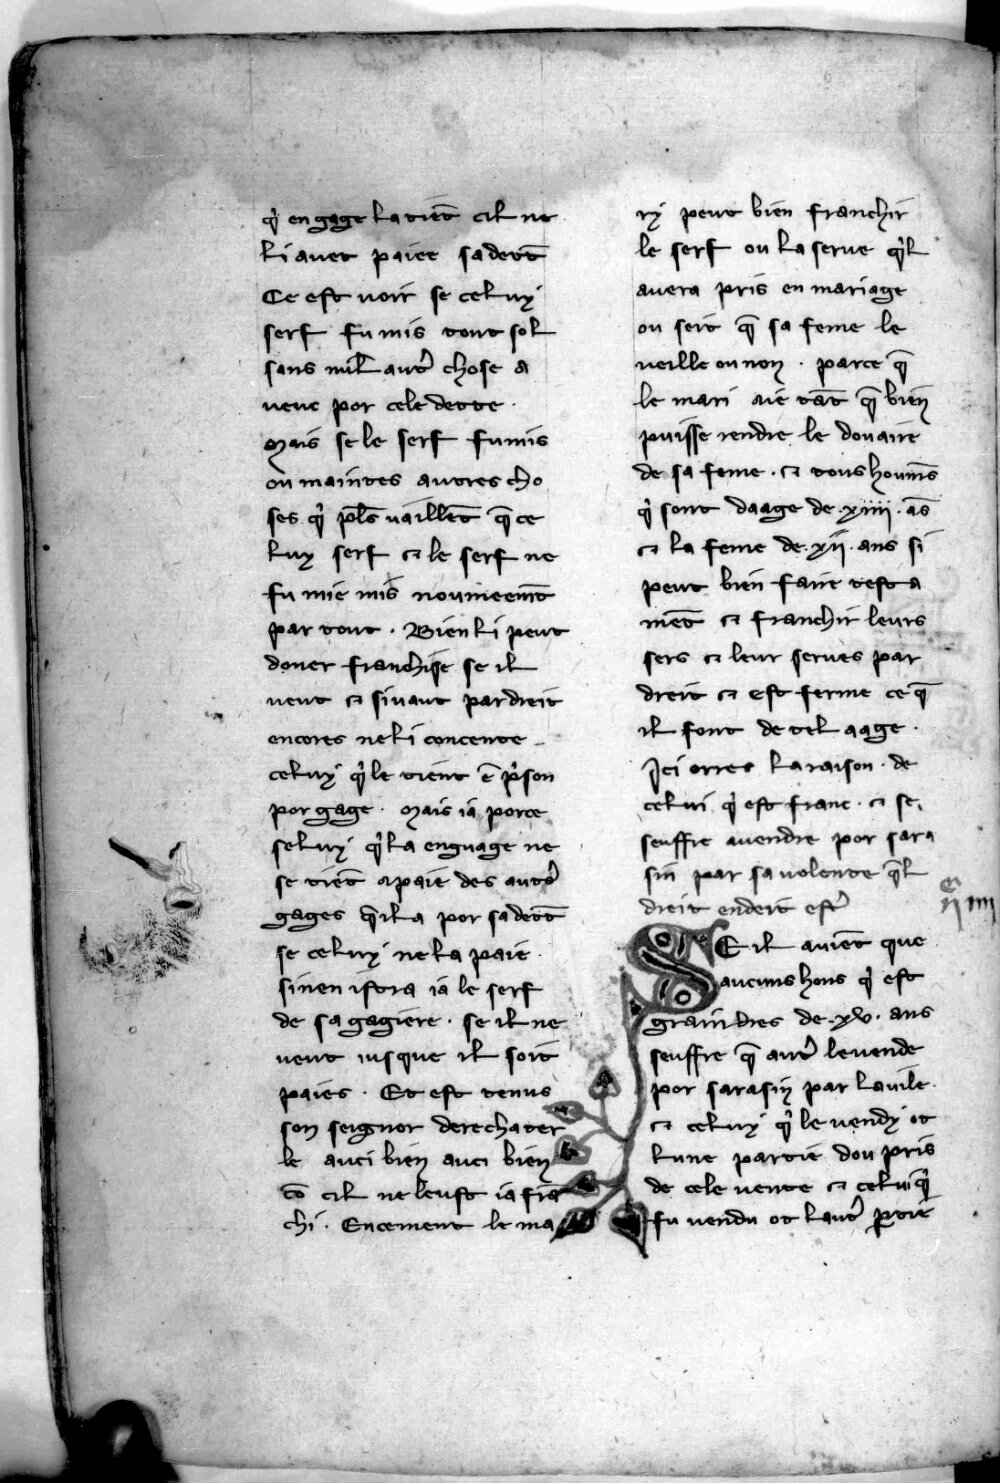 q̇ en gage la tiēt cil ne
li auet paiee sa dett̄
Ce est uoir se celuy
serf fu mis tout sol
sans nul̄ autr̄ chose a
ueuc por cele dette ·
Mais se le serf fu mis
ou maintes autres cho
ses q̇ pl̄s uaillēt q̄ ce
luy serf ⁊ le serf ne
fu mie mis noumeem̄t
par tout · Bien li peut
doner franchise se il
ueut ⁊ si uaut par dreit
encores ne li concente
celuy q̇ le tient ē ṗson
por gage · Mais ia por ce
seluy q̇ la enguage ne
se tiēt apaie des autr̄
gages q̄ il a por sa dett̄
se celuy ne la paie ·
si nen istra ia le serf
de sa gagiere · se il ne
ueut iusque il soit
paies · Et est tenus
son seignor de rechater
le auci bien auci bien
cō cil ne leust ia frā
chi · Encement le ma
ry peut bien franchir
le serf ou la serue q̇l
auera pris en mariage
ou seit q̄ sa feme le
ueille ou non · par ce q̄
le mari aie tāt q̄ bien
puisse rendre le douaire
de sa feme · ⁊ tous houm̄s
q̇ sont daage de · xiiii · ās
⁊ la feme de · xii · ans si
peut bien faire testa
mēt ⁊ franchir leurs
sers ⁊ leur serues par
dreit ⁊ est ferme ce q̄
il font de tel aage ·
Ici orres la raison · de
celui q̇ est franc · ⁊ se
seuffre a uendre por sara
sin par sa uolente q̄l
dreit en deit estr̄
SE il auiēt que
aucuns hons q̇ est
graindres de · xv · ans
seuffre q̄ autr̄ le uende
por sarasin par la uile ·
⁊ celuy q̇ le uendy ot
lune partie dou pris
de cele uente ⁊ celui q̇
fu uendu ot lautr̄ p̱tie